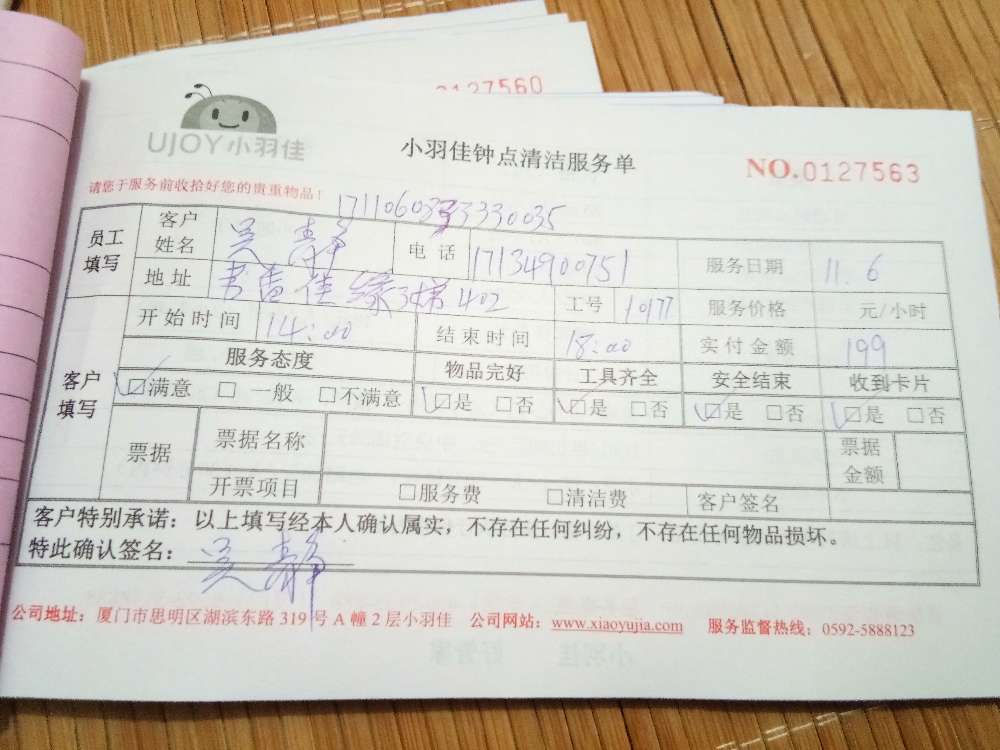 0127560
UJOY小羽佳
小羽佳钟点清洁服务单
NO.0127563
请您于服务前收拾好您的贵重物品！
员工填写 客户姓名 吴静 电话 17134900751 服务日期 11.6
地址 佳缘3梯402 工号 10177 服务价格 元/小时
开始时间 14:00 结束时间 18:00 实付金额 199
客户填写 服务态度 物品完好 工具齐全 安全结束 收到卡片
☑满意 □一般 □不满意 ☑是 □否 ☑是 □否 ☑是 □否 ☑是 □否
票据 票据名称 票据金额
开票项目 □服务费 □清洁费 客户签名
客户特别承诺：以上填写经本人确认属实，不存在任何纠纷，不存在任何物品损坏。
特此确认签名：吴静
公司地址：厦门市思明区湖滨东路319号A幢2层小羽佳 公司网站：www.xiaoyujia.com 服务监督热线：0592-5888123